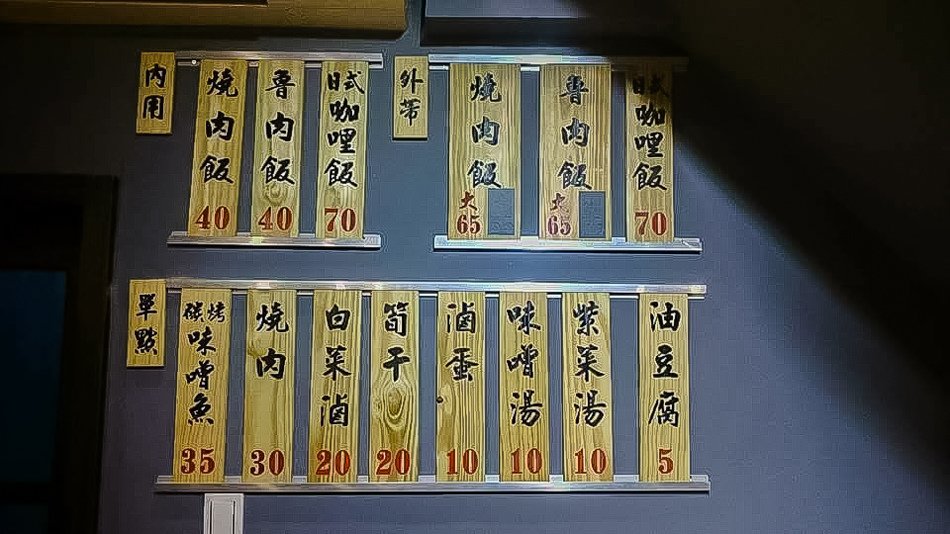 內用
燒肉飯 40
魯肉飯 40
日式咖哩飯 70
外帶
燒肉飯 大65
魯肉飯 大65
日式咖哩飯 70
單點
碳烤味噌魚 35
燒肉 30
白菜滷 20
筍干 20
滷蛋 10
味噌湯 10
紫菜湯 10
油豆腐 5